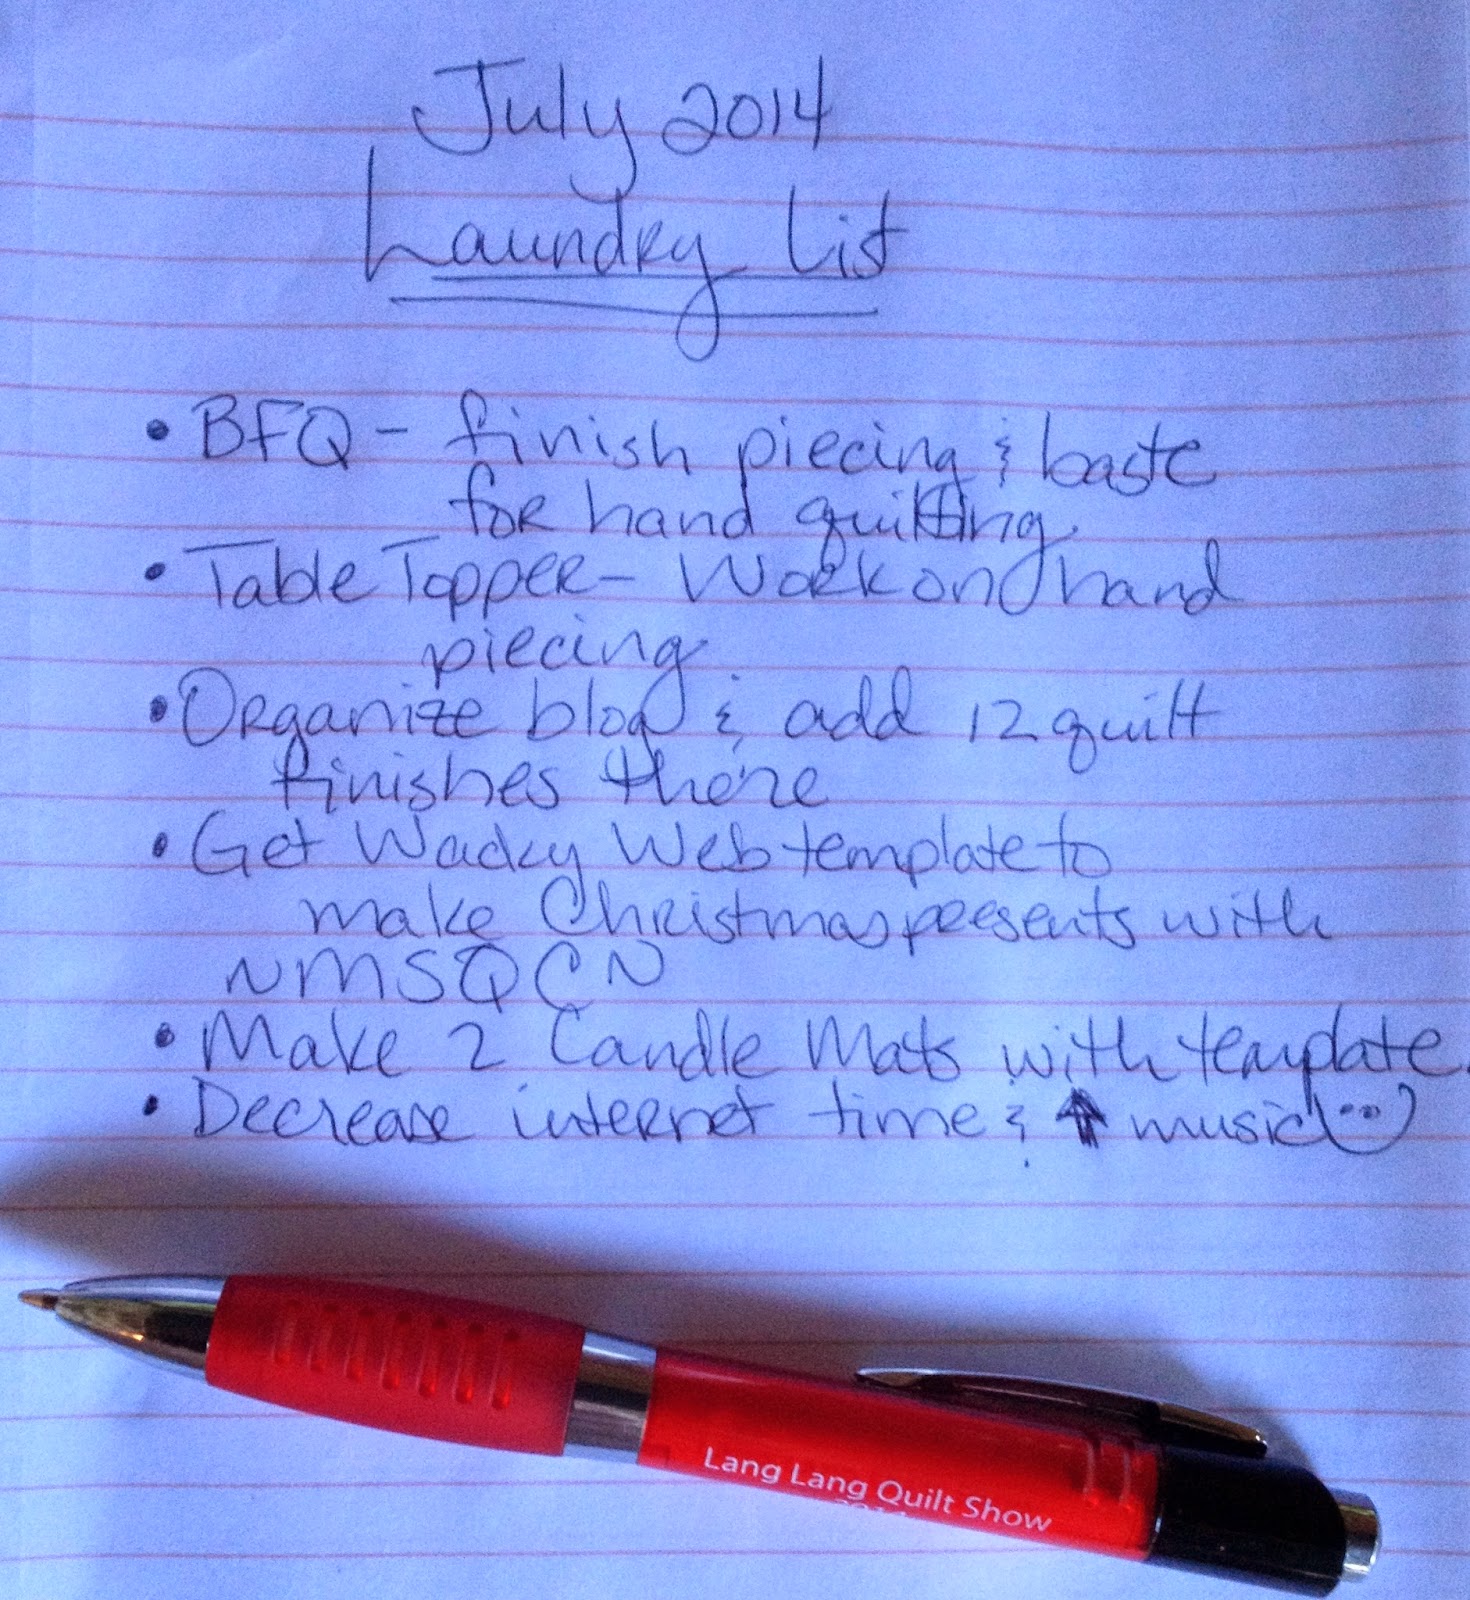 July 2014
Laundry List
• BFQ - finish piecing & baste
for hand quilting
• Table Topper - Work on hand
piecing
• Organize blog & add 12 quilt
finishes there
• Get Wacky Web template to
make Christmas presents with
NMSQCN
• Make 2 Candle Mats with template.
• Decrease internet time & ↑ music
Lang Lang Quilt Show